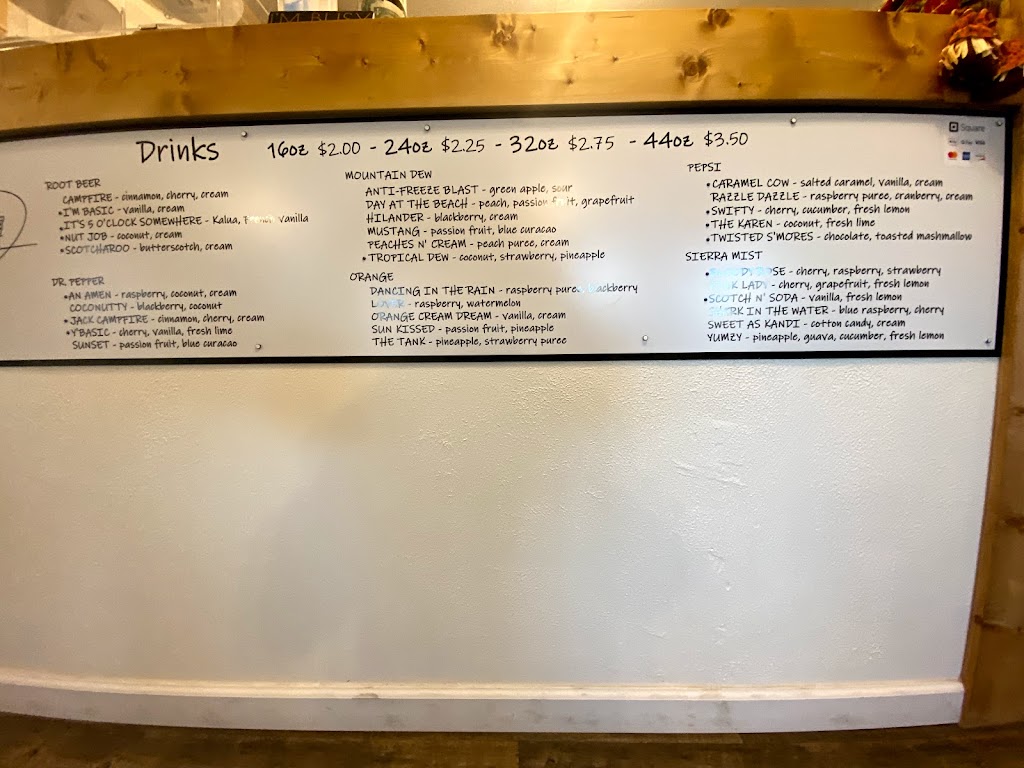 I'M BUSY
Drinks 16oz $2.00 - 24oz $2.25 - 32oz $2.75 - 44oz $3.50
Square
ROOT BEER
CAMPFIRE - cinnamon, cherry, cream
•I'M BASIC - vanilla, cream
•IT'S 5 O'CLOCK SOMEWHERE - Kalua, vanilla
•NUT JOB - coconut, cream
•SCOTCHAROO - butterscotch, cream
DR. PEPPER
•AN AMEN - raspberry, coconut, cream
COCONUTTY - blackberry, coconut
•JACK CAMPFIRE - cinnamon, cherry, cream
•Y'BASIC - cherry, vanilla, fresh lime
SUNSET - passion fruit, blue curacao
MOUNTAIN DEW
ANTI-FREEZE BLAST - green apple, sour
DAY AT THE BEACH - peach, passion fruit, grapefruit
HILANDER - blackberry, cream
MUSTANG - passion fruit, blue curacao
PEACHES N' CREAM - peach puree, cream
•TROPICAL DEW - coconut, strawberry, pineapple
ORANGE
DANCING IN THE RAIN - raspberry puree, blackberry
LOVER - raspberry, watermelon
ORANGE CREAM DREAM - vanilla, cream
SUN KISSED - passion fruit, pineapple
THE TANK - pineapple, strawberry puree
PEPSI
•CARAMEL COW - salted caramel, vanilla, cream
RAZZLE DAZZLE - raspberry puree, cranberry, cream
•SWIFTY - cherry, cucumber, fresh lemon
•THE KAREN - coconut, fresh lime
•TWISTED S'MORES - chocolate, toasted mashmallow
SIERRA MIST
- cherry, raspberry, strawberry
LADY - cherry, grapefruit, fresh lemon
•SCOTCH N' SODA - vanilla, fresh lemon
SHARK IN THE WATER - blue raspberry, cherry
SWEET AS KANDI - cotton candy, cream
YUMZY - pineapple, guava, cucumber, fresh lemon